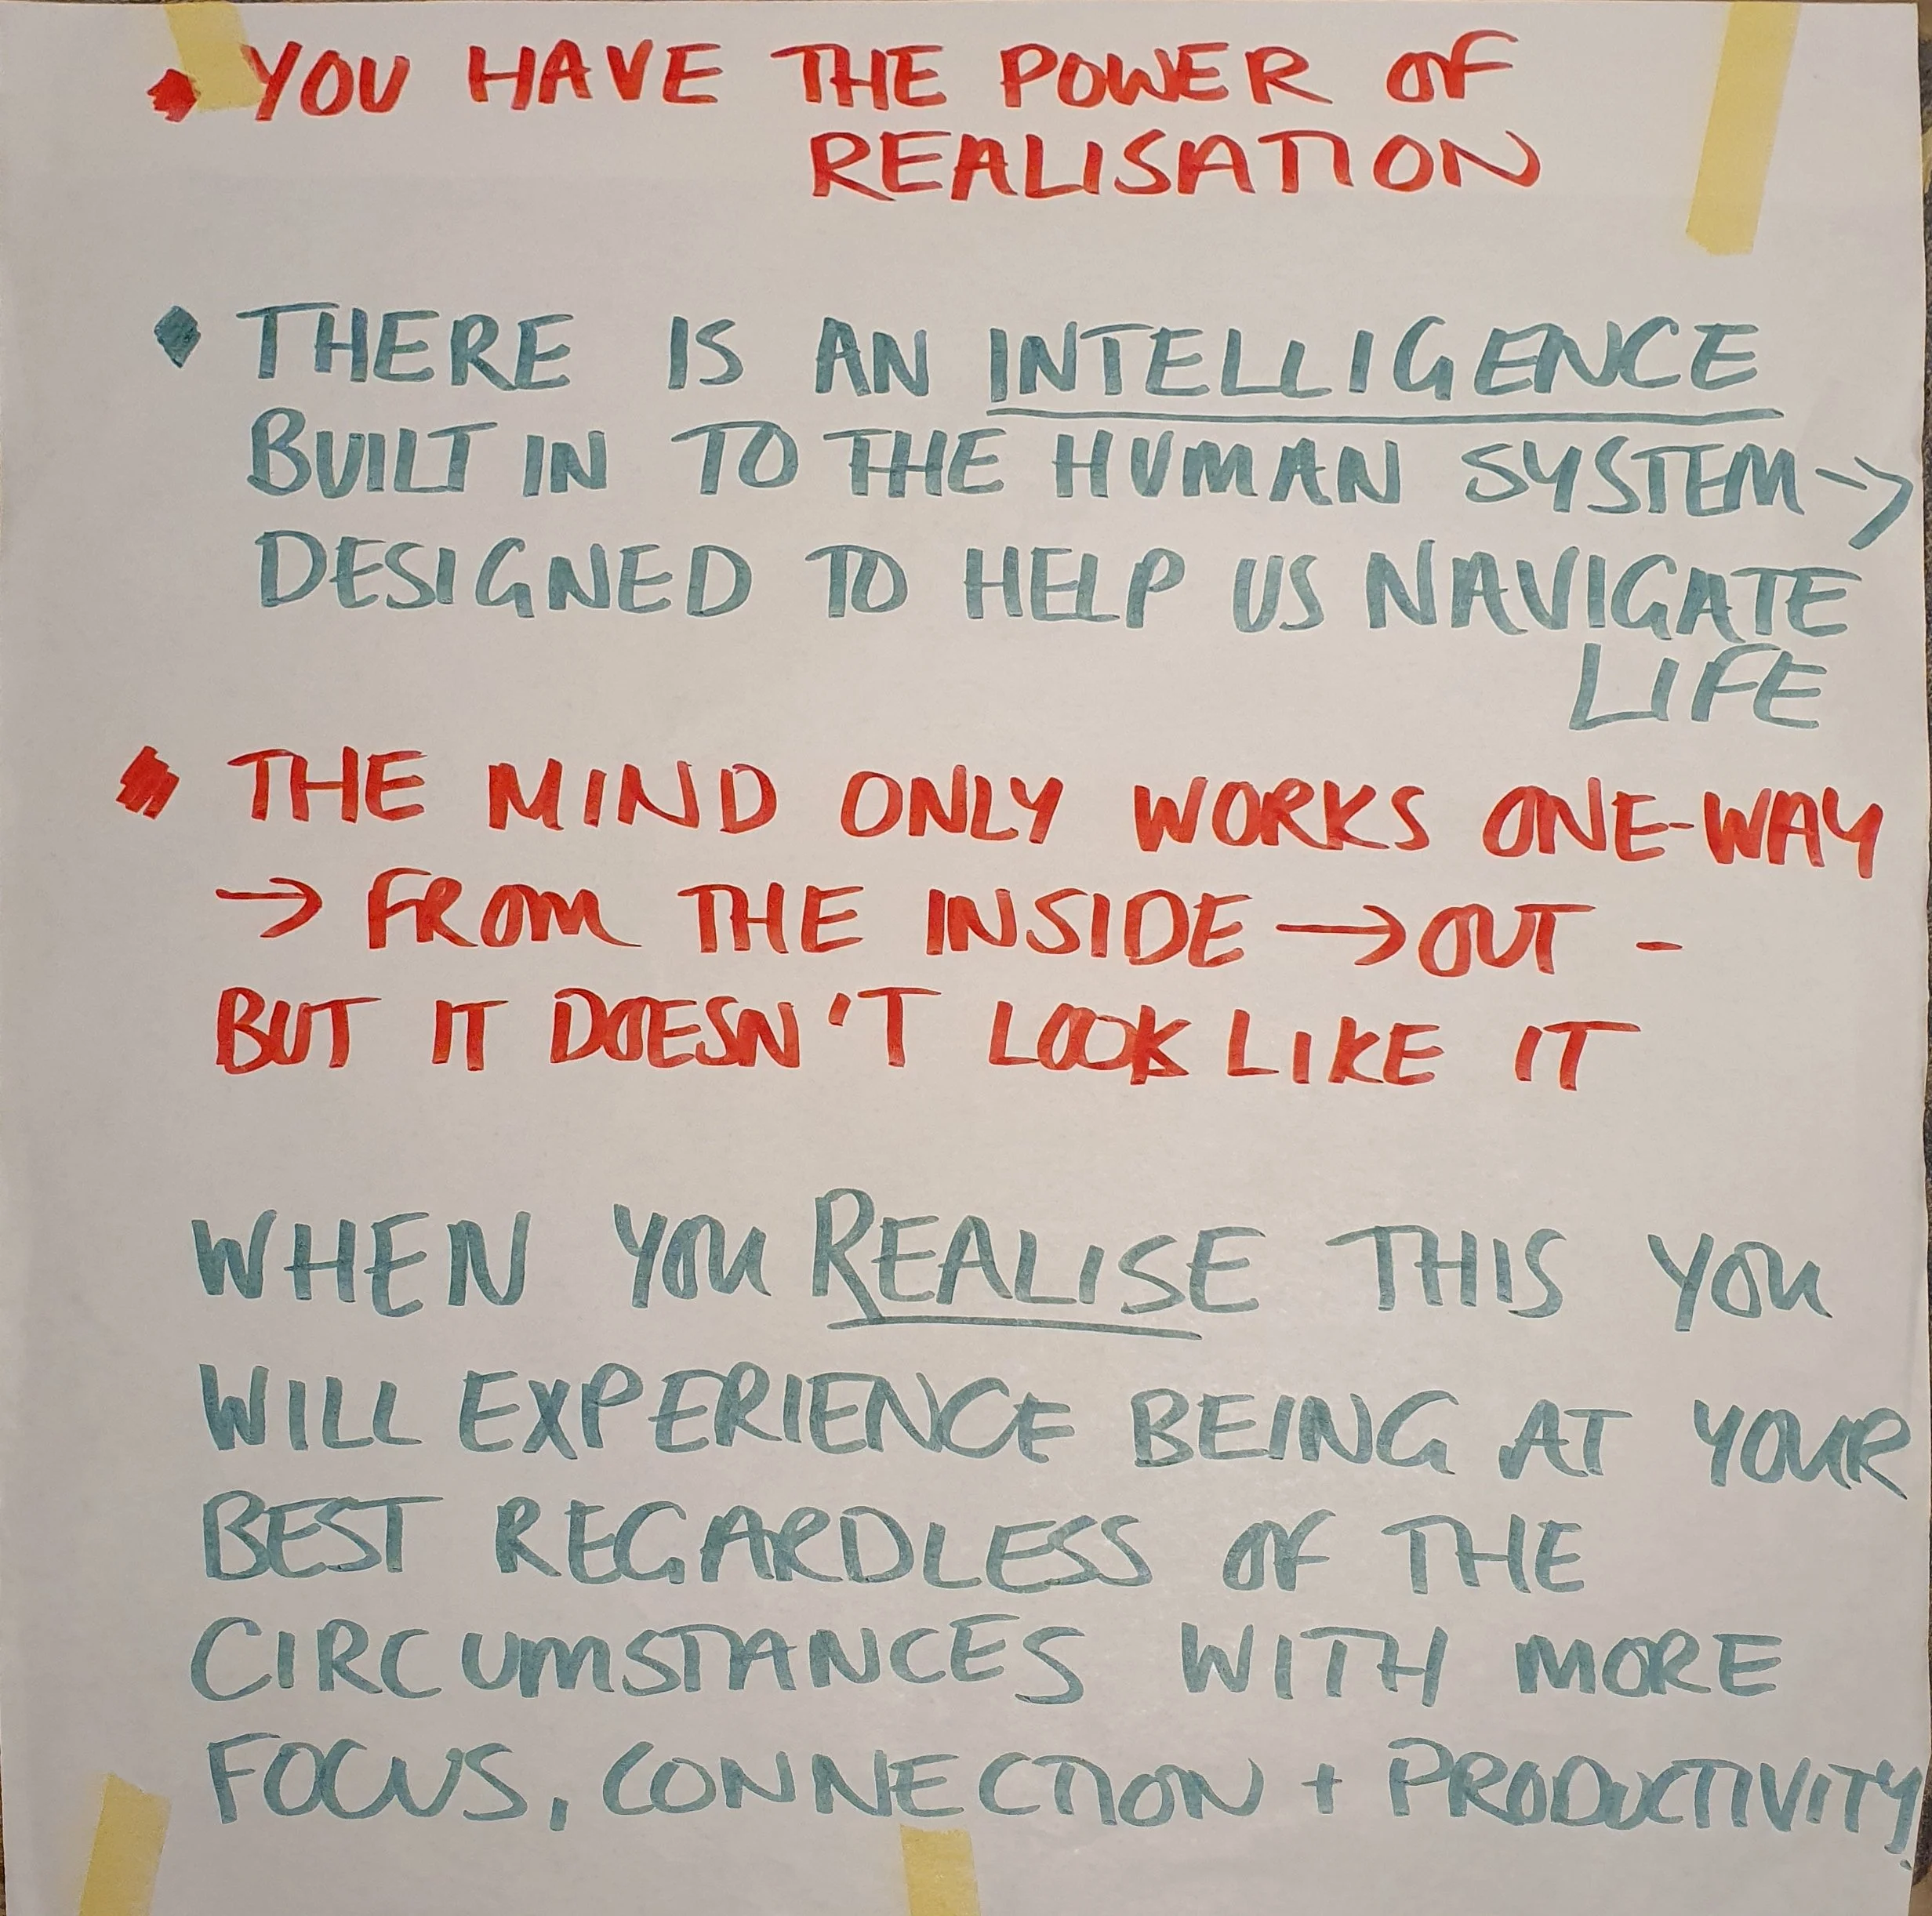 ◆ YOU HAVE THE POWER OF
REALISATION
◆ THERE IS AN INTELLIGENCE
BUILT IN TO THE HUMAN SYSTEM →
DESIGNED TO HELP US NAVIGATE
LIFE
◆ THE MIND ONLY WORKS ONE-WAY
→ FROM THE INSIDE → OUT -
BUT IT DOESN'T LOOK LIKE IT
WHEN YOU REALISE THIS YOU
WILL EXPERIENCE BEING AT YOUR
BEST REGARDLESS OF THE
CIRCUMSTANCES WITH MORE
FOCUS, CONNECTION + PRODUCTIVITY.